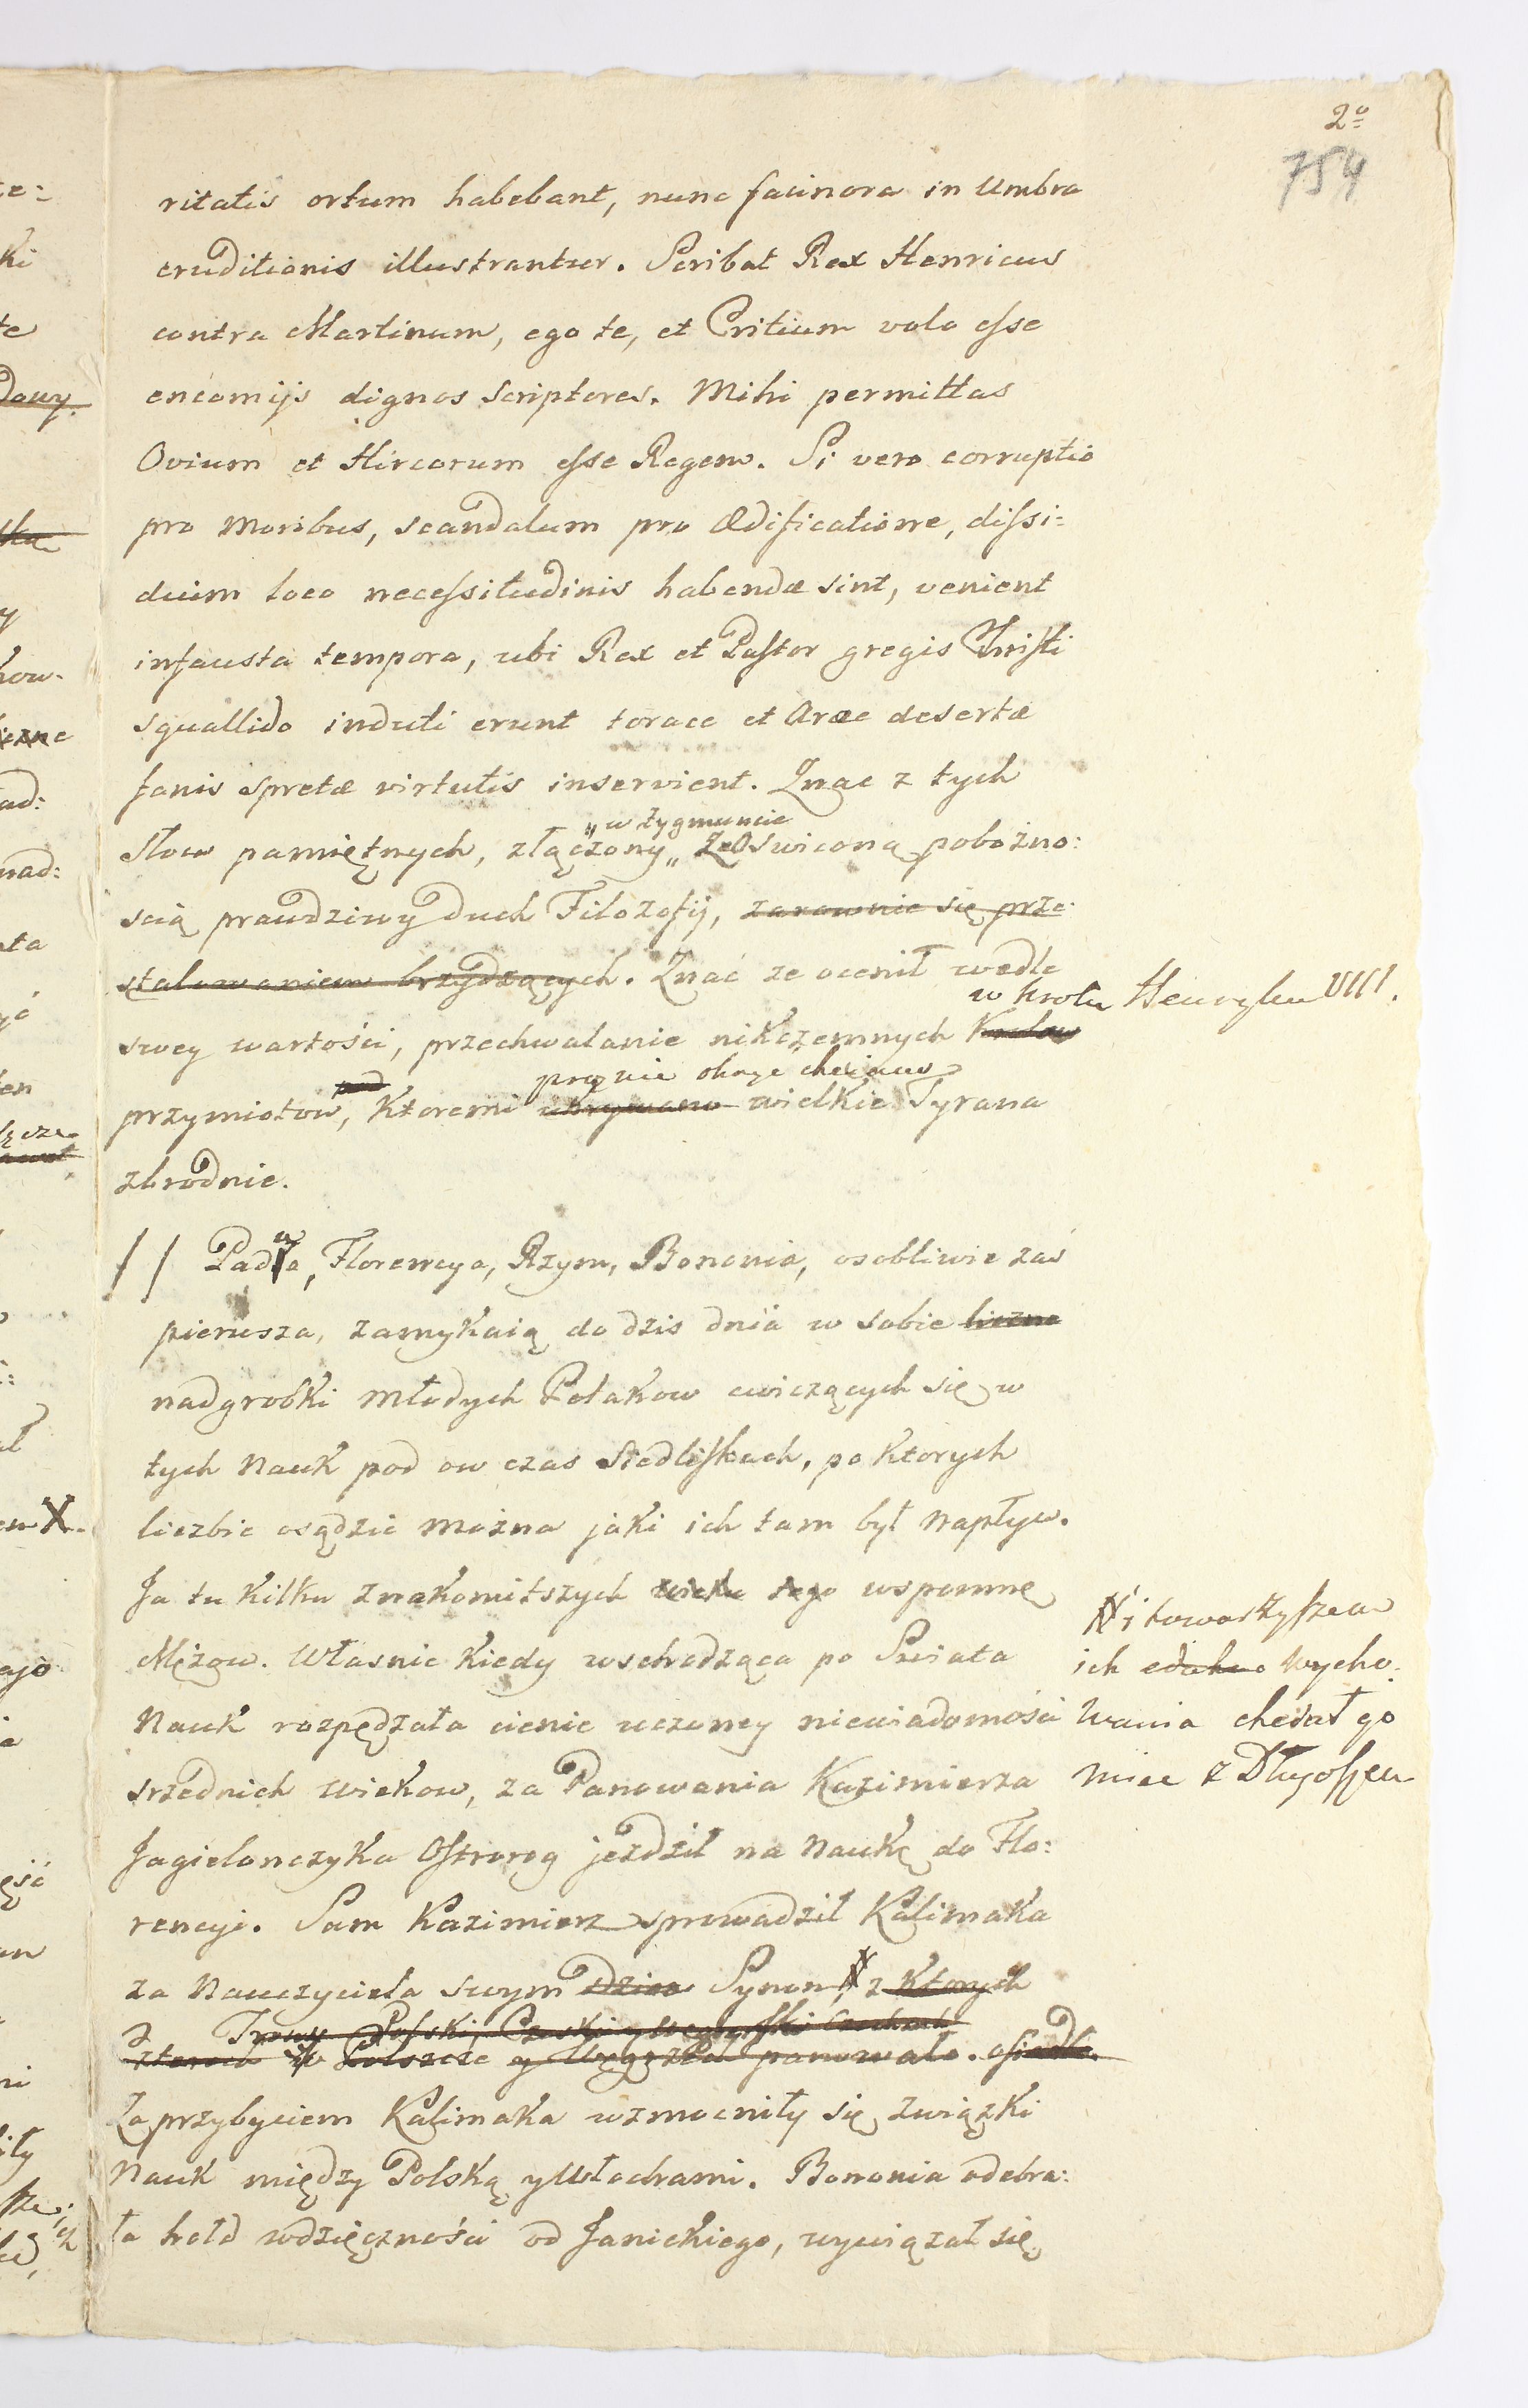 2º
754
ritatis ortum habebant, nunc facinora in Umbra
eruditionis illustrantur. Scribat Rex Henricus
contra Martinum, ego te, et Critium volo esse
encomijs dignos scriptores. Mihi permittas
Ovium et Hircorum esse Regem. Si vero corruptio
pro Moribus, scandalum pro Ædificatione, dissi=
duim loco necessitudinis habendæ sint, venient
infausta tempora, ubi Rex et Pastor gregis Christi
squallido induti erunt torace et Aræ desertæ
fanis spretæ virtutis inservient. Znac z tych
w Zygmuncie
słow pamiętnych, złączony „ Ze Oswiconą poboźno:
scią prawdziwy duch Filozofij, zarownie się prze-
stalowaniem brzydzących. Znać ze ocenił wedle
w krolu Henryku VIII.
swey wartości, przechwalanie nikczemnych Krolow
proznie okryc chciano
przymiotow, Ktoremi ukrywano wielkie Tyrana
zbrodnie.
// Padua, Florencya, Rzym, Bononia, osobliwie zaś
pierwsza, zamykaią do dzis dnia w sobie liczne
nadgrobki Młodych Polakow cwiczących się w
tych Nauk pod ow czas Siedliskach, po Ktorych
liczbie osądzic Można jaki ich tam był Napływ.
Ja tu kilku znakomitszych wieku tego wspomnę
Mężow. Własnie Kiedy wschodząca po Swiata
Nauk rozpędzała cienie uczoney niewiadomości
srzednich wiekow, za Panowania Kazimierza
Jagielonczyka Ostrorog jezdził na Naukę do Flo:
rencyi. Sam Kazimierz sprowadził Kalimaka
za Nauczyciela swym Synom X z Ktorych
Trony Polski, Czeski y Węgierski
czterech w Polszcze y Węgrzech panowało. osiadło.
Za przybyciem Kalimaka wzmocniły się związki
Nauk między Polską y Włochami. Bononia odebra:
ła hołd wdzięczności od Janickiego, wywiązał się
X i towarzyszem
ich wycho:
wania chciał go
miec z Długoszem